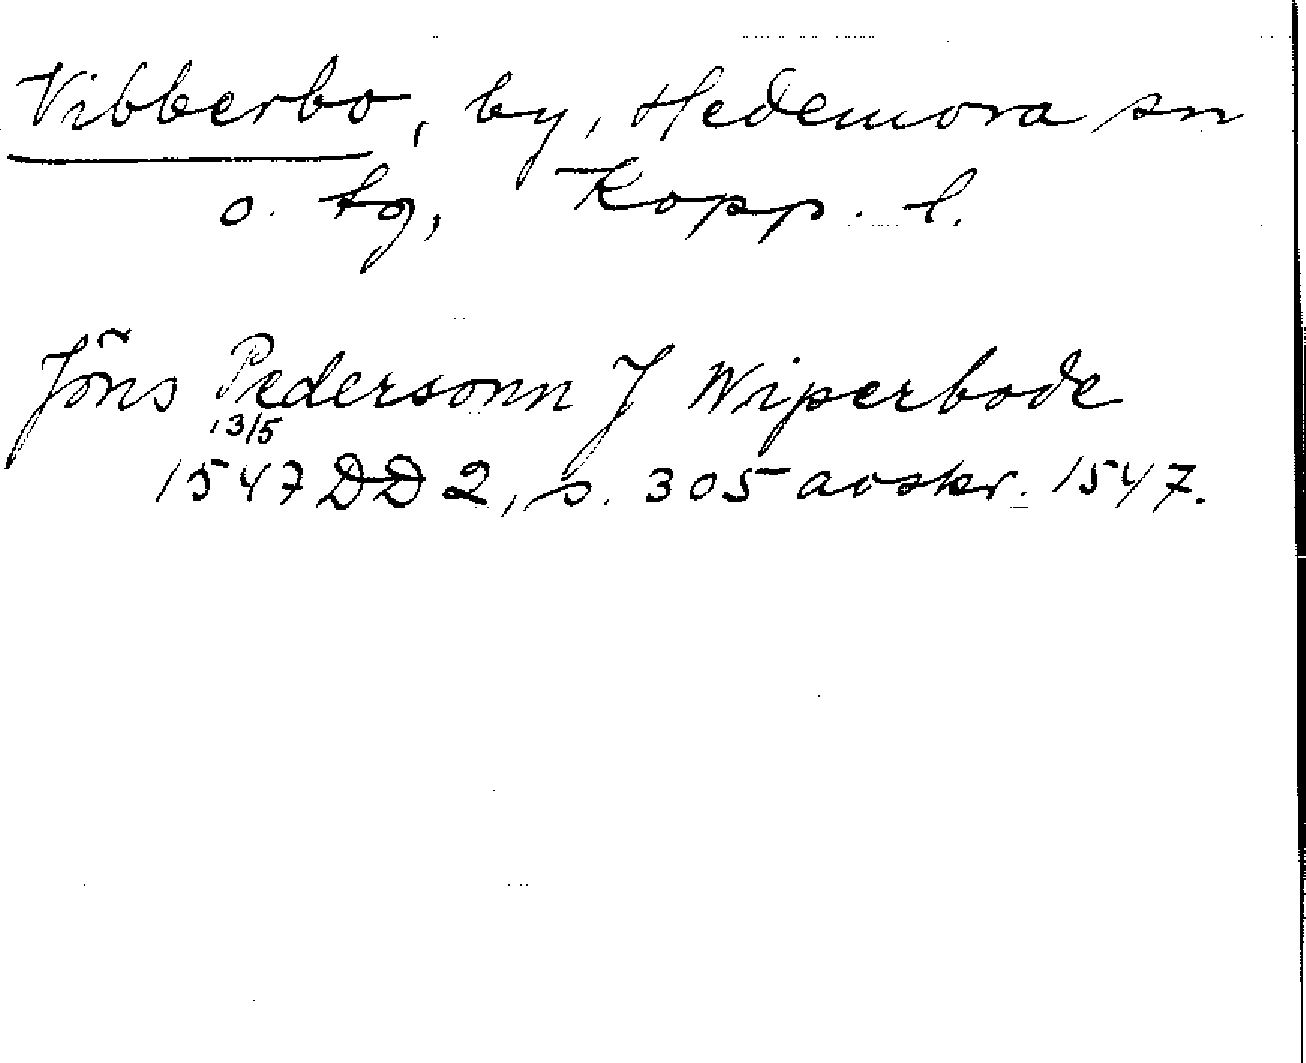 Vibberbo, by, Hedemora sn
o. tg, Kopp. l.
Jöns Pedersonn J Wiperbode
13/5
1547 DD 2, s. 305 avskr. 1547.